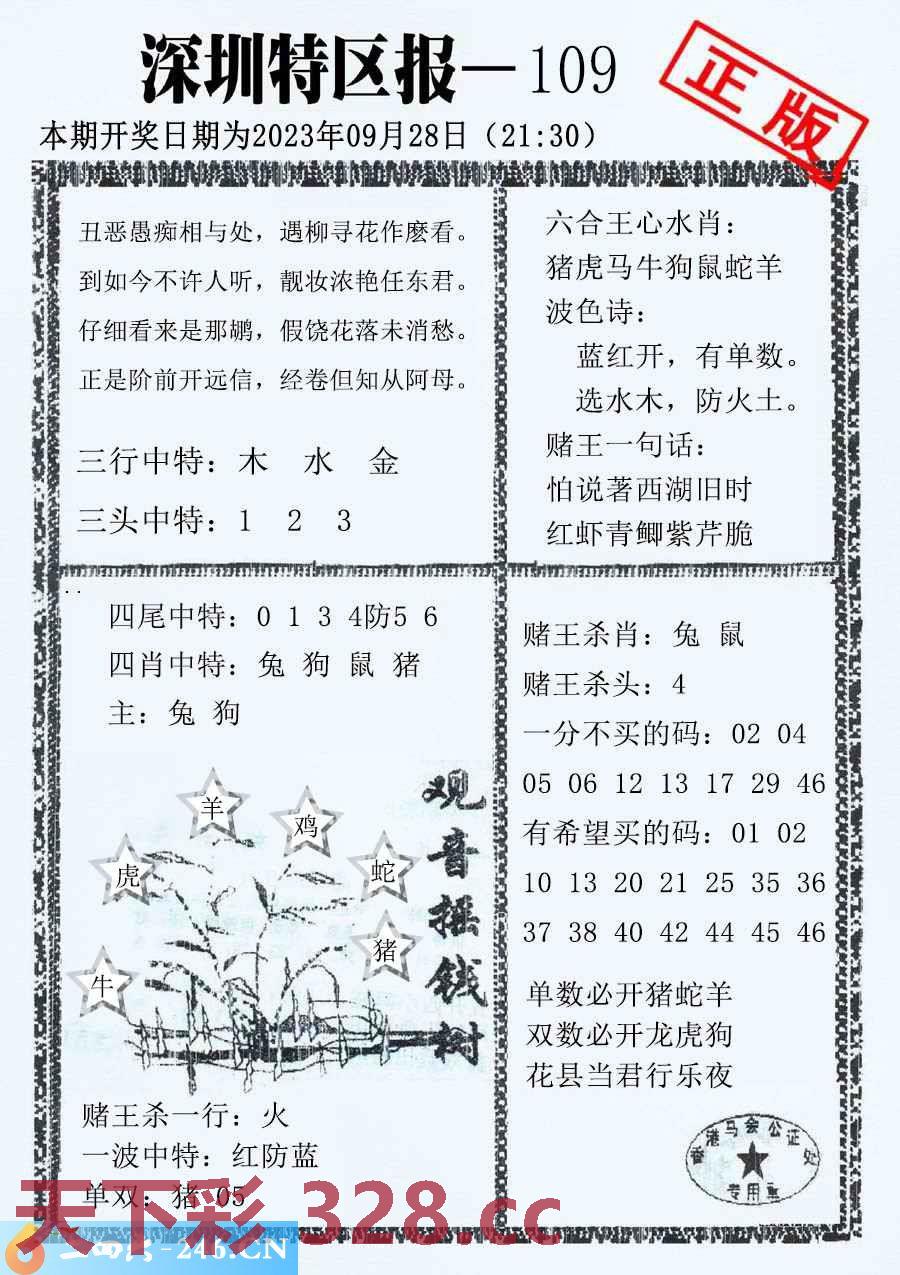 深圳特区报—109
正版
本期开奖日期为2023年09月28日（21:30）
丑恶愚痴相与处，遇柳寻花作麽看。
到如今不许人听，靓妆浓艳任东君。
仔细看来是那鹏，假饶花落未消愁。
正是阶前开远信，经卷但知从阿母。
三行中特：木 水 金
三头中特：1 2 3
六合王心水肖：
猪虎马牛狗鼠蛇羊
波色诗：
蓝红开，有单数。
选水木，防火土。
赌王一句话：
怕说著西湖旧时
红虾青鲫紫芹脆
四尾中特：0 1 3 4防5 6
四肖中特：兔 狗 鼠 猪
主：兔 狗
观音摇钱树
羊
鸡
虎
蛇
猪
牛
赌王杀一行：火
一波中特：红防蓝
单双：猪 05
赌王杀肖：兔 鼠
赌王杀头：4
一分不买的码：02 04
05 06 12 13 17 29 46
有希望买的码：01 02
10 13 20 21 25 35 36
37 38 40 42 44 45 46
单数必开猪蛇羊
双数必开龙虎狗
花县当君行乐夜
香港马会公证处
专用章
天下彩 328.cc
-246.CN